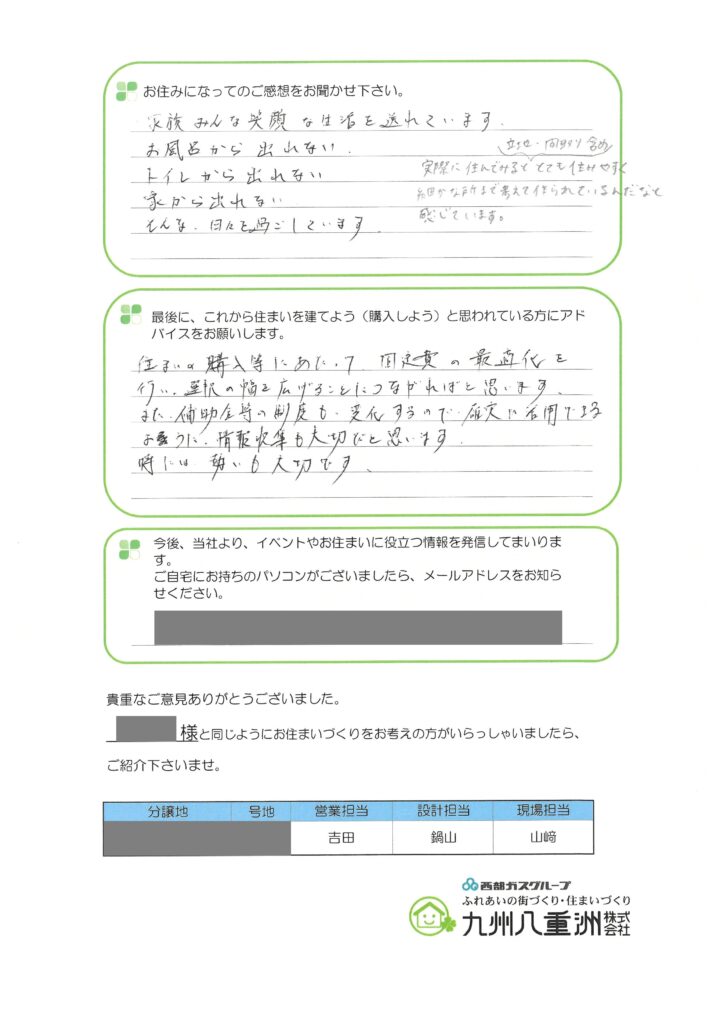 お住みになってのご感想をお聞かせ下さい。
家族みんな笑顔な生活を送れています.
お風呂から出れない.
トイレから出れない
家から出れない
そんな、日々を過ごしています.
立地・間取り含め
実際に住んでみるととても住みやすく
細かな所まで考えて作られているんだなと
感じています。
最後に、これから住まいを建てよう（購入しよう）と思われている方にアド
バイスをお願いします。
住まいの購入等にあたって 固定費の最適化を
行い、選択の幅を広げることにつながればと思います.
また、補助金等の制度も変化するので、確実に活用できる
ように、情報収集も大切だと思います.
時には勢いも大切です.
今後、当社より、イベントやお住まいに役立つ情報を発信してまいりま
す。
ご自宅にお持ちのパソコンがございましたら、メールアドレスをお知ら
せください。
貴重なご意見ありがとうございました。
様と同じようにお住まいづくりをお考えの方がいらっしゃいましたら、
ご紹介下さいませ。
分譲地 号地 営業担当 設計担当 現場担当
吉田 鍋山 山﨑
西部ガスグループ
ふれあいの街づくり・住まいづくり
九州八重洲株式会社